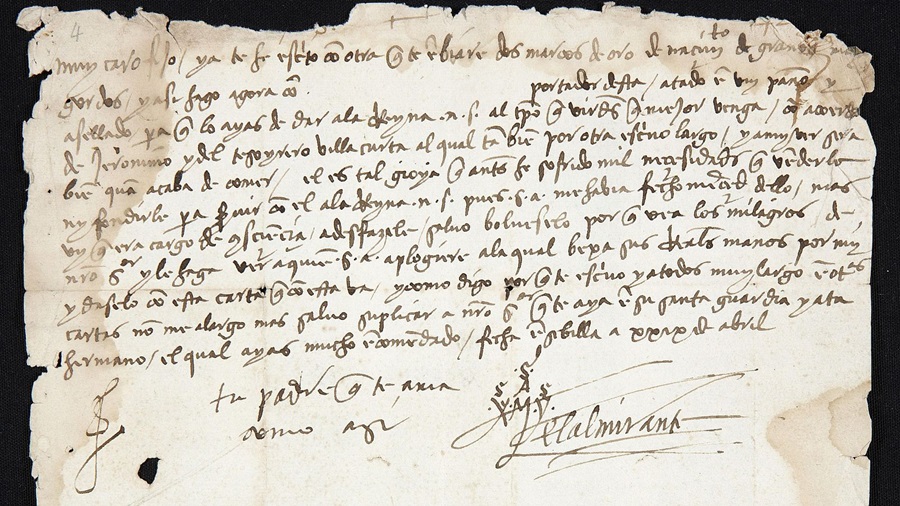 4
muy caro fijo / ya te he escto con otra q̃ te ẽbiare dos marcos de oro de nacimto de granos muy
gordos / y asi hago agora cõ portador desta / atado ẽ un paño y
asellado pa q̃ lo ayas de dar a la Reyna .n. s. al tpo q̃ vierds q̃ mejor venga / cõ acuerdo
de Jeronimo y del tesoyrero villacurta al qual tãbiẽ escriuo largo / y a my ver sera
biẽ quãdo acaba de comer / el es tal gioya q̃ antes he sofrido mil necesidads q̃ vẽderle
ny fondirle pa seruir cõ el a la Reyna .n. s. pues s. a. me habia fecho mrced dello / mas
vy q̃ era cargo de cõsciẽcia / a desfazele / salvo bolueselo por q̃ vea los milagros de
nro sor y le haga ver a quien s. a. aplogiere a la qual besa sus Reals manos por my
y daselo cõ esta carta q̃ cõ esta va / y como digo por q̃ te escriuo y a todos muy largo ẽ otas
cartas nõ me alargo mas salvo suplicar a nro sor q̃ te aya ẽ su santa guardia y a ta
hermano / el qual ayas mucho ẽcomẽdado / fecha ẽ sebilla a xxix d abril
tu padre q̃ te ama
como asi
.s.
.s. A .s.
x m y
el almirante